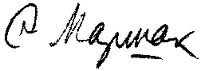 С Маршак